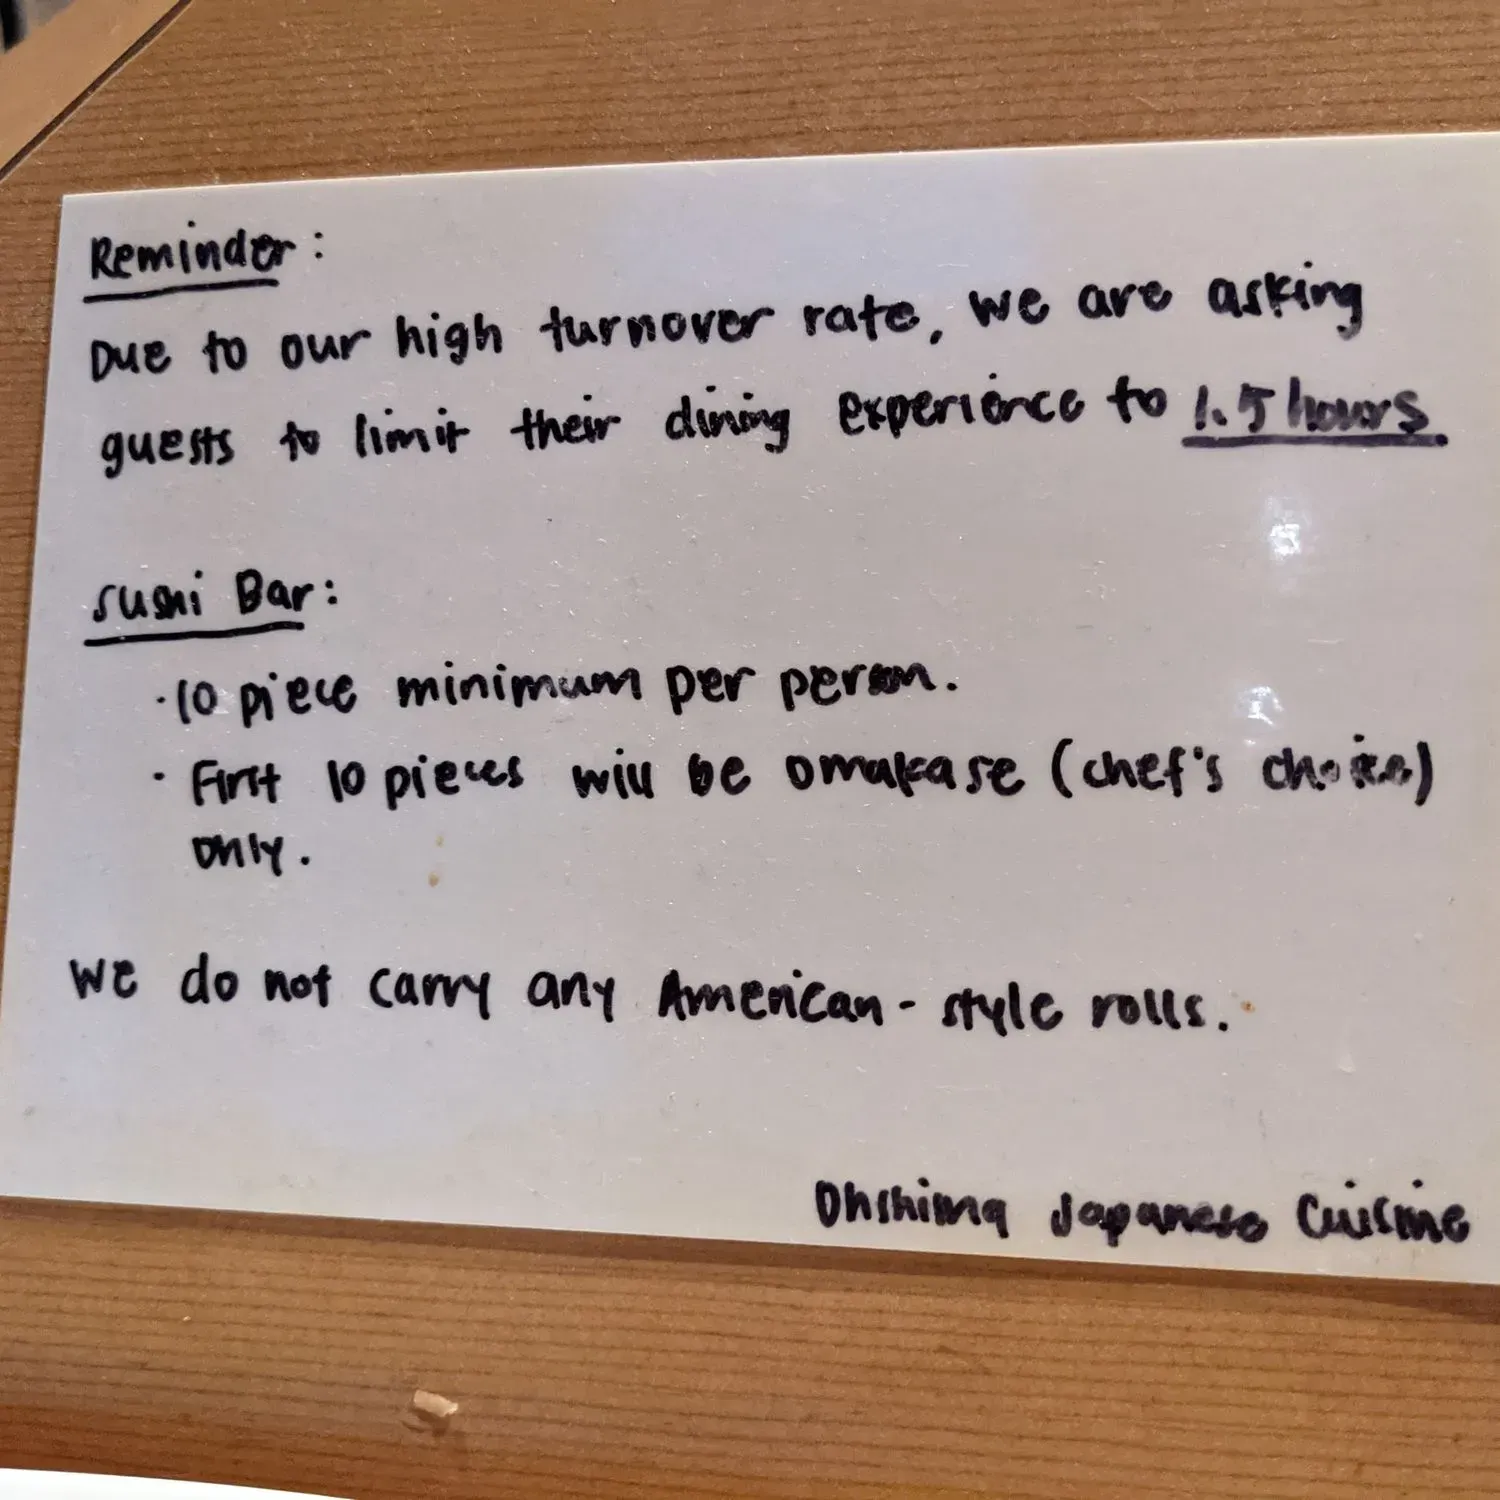 Reminder:
Due to our high turnover rate, we are asking
guests to limit their dining experience to 1.5 hours.
Sushi Bar:
· 10 piece minimum per person.
· First 10 pieces will be omakase (chef's choice)
only.
We do not carry any American-style rolls.
Ohshima Japanese Cuisine